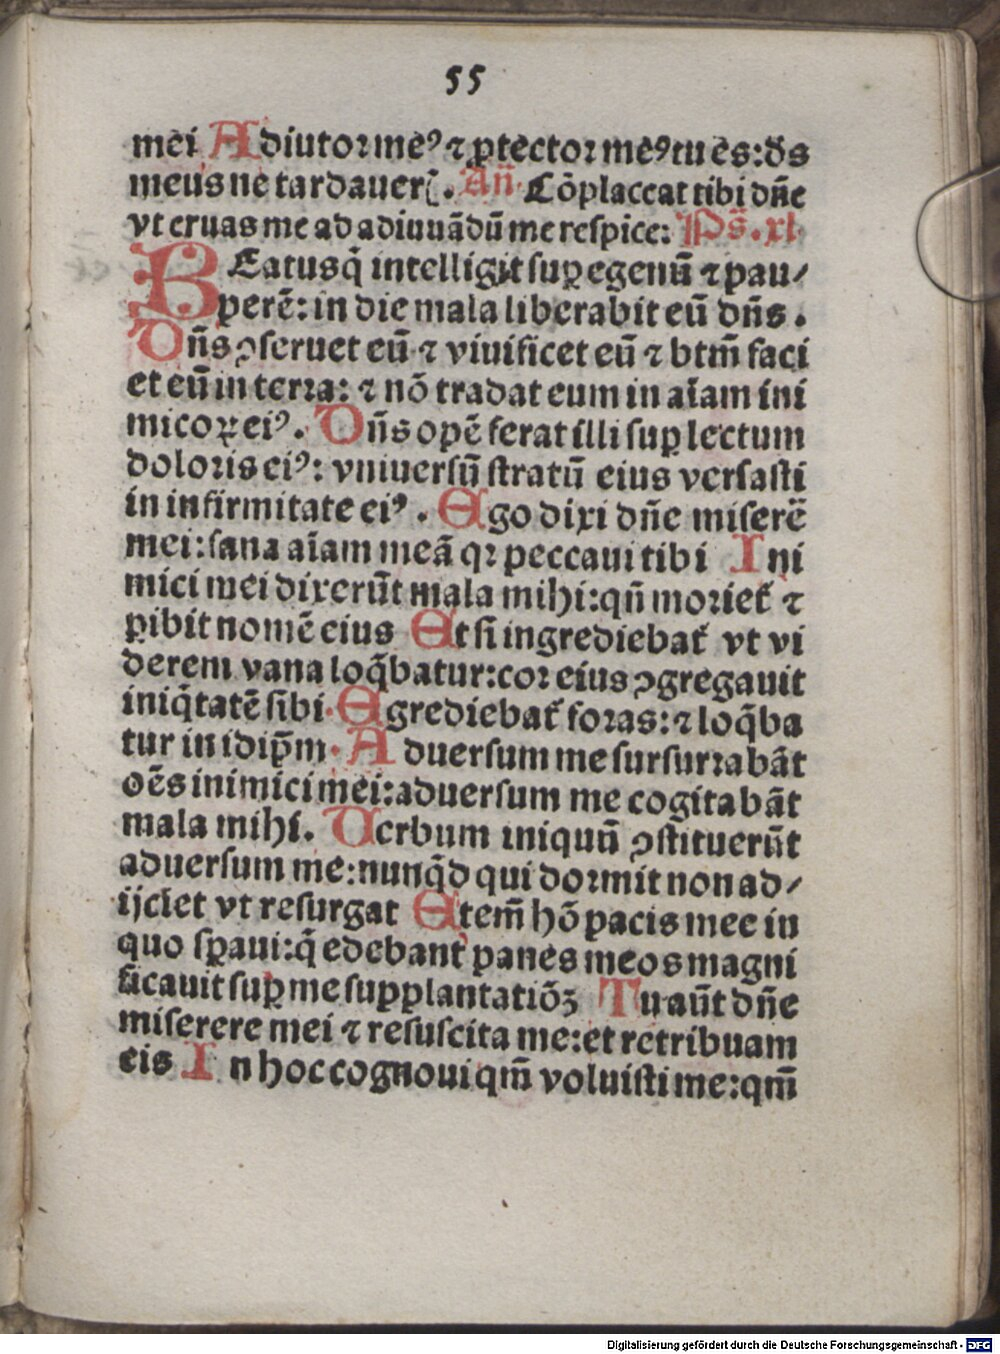 55
mei Adiutor meꝰ ⁊ ꝓtector meꝰ tu es: ds̄
meus ne tardaueris. Añ. Cōplaceat tibi dñe
vt eruas me ad adiuuādū me respice: Ps̄. xl.
BEatus q̇ intelligit suꝑ egenū ⁊ pau/
perē: in die mala liberabit eū dñs.
Dñs ꝯseruet eū ⁊ viuificet eū ⁊ btm̄ faci
et eū in terra: ⁊ nō tradat eum in aīam ini
micoꝝ eiꝰ. Dñs opē ferat illi suꝑ lectum
doloris eiꝰ: vniuersū stratū eius versasti
in infirmitate eiꝰ. Ego dixi dñe miserē
mei: sana aīam meā qꝛ peccaui tibi Ini
mici mei dixerūt mala mihi: qñ moriet̃ ⁊
ꝑibit nomē eius Et si ingrediebat̃ vt vi
derem vana loq̄batur: cor eius ꝯgregauit
iniq̇tatē sibi. Egrediebat̃ foras: ⁊ loq̄ba
tur in idip̄m. Aduersum me sursurrabāt
oēs inimici mei: aduersum me cogitabāt
mala mihi. Uerbum iniquū ꝯstituerūt
aduersum me: nunq̇d qui dormit non ad/
ijciet vt resurgat Etem̄ hō pacis mee in
quo sꝑaui: q̇ edebant panes meos magni
ficauit suꝑ me supplantatiōꝫ Tu aūt dñe
miserere mei ⁊ resuscita me: et retribuam
eis In hoc cognoui qm̄ voluisti me: qm̄
Digitalisierung gefördert durch die Deutsche Forschungsgemeinschaft - DFG